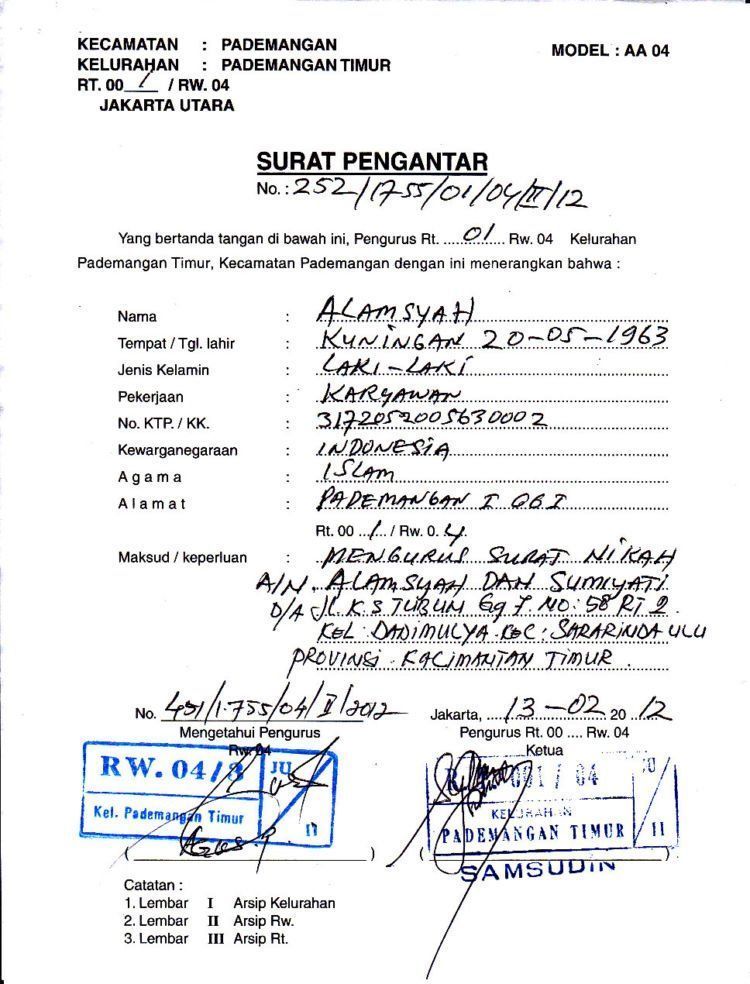 KECAMATAN : PADEMANGAN
MODEL : AA 04
KELURAHAN : PADEMANGAN TIMUR
RT. 00 1 / RW. 04
JAKARTA UTARA
SURAT PENGANTAR
No. : 252/1755/01/04/II/12
Yang bertanda tangan di bawah ini, Pengurus Rt. 01 Rw. 04 Kelurahan
Pademangan Timur, Kecamatan Pademangan dengan ini menerangkan bahwa :
Nama : ALAMSYAH
Tempat / Tgl. lahir : KUNINGAN 20-05-1963
Jenis Kelamin : LAKI-LAKI
Pekerjaan : KARYAWAN
No. KTP. / KK. : 3172052005630002
Kewarganegaraan : INDONESIA
Agama : ISLAM
Alamat : PADEMANGAN I GG I
Rt. 00 1 / Rw. 0. 4.
Maksud / keperluan : MENGURUS SURAT NIKAH
A/N. ALAMSYAH DAN SUMIYATI
D/A JL. K.S TUBUN Gg 7. NO: 58 RT 2.
KEL: DADIMULYA KEC: SARARINDA ULU
PROVINSI KALIMANTAN TIMUR.
No. 451/1.755/04/II/2012
Jakarta, 13-02 20 12
Mengetahui Pengurus
Pengurus Rt. 00 .... Rw. 04
Rw. 04
Ketua
RW. 04/3 JU
Kel. Pademangan Timur 11
001 / 04 JU
KELURAHAN
PADEMANGAN TIMUR 11
SAMSUDIN
Catatan :
1. Lembar I Arsip Kelurahan
2. Lembar II Arsip Rw.
3. Lembar III Arsip Rt.